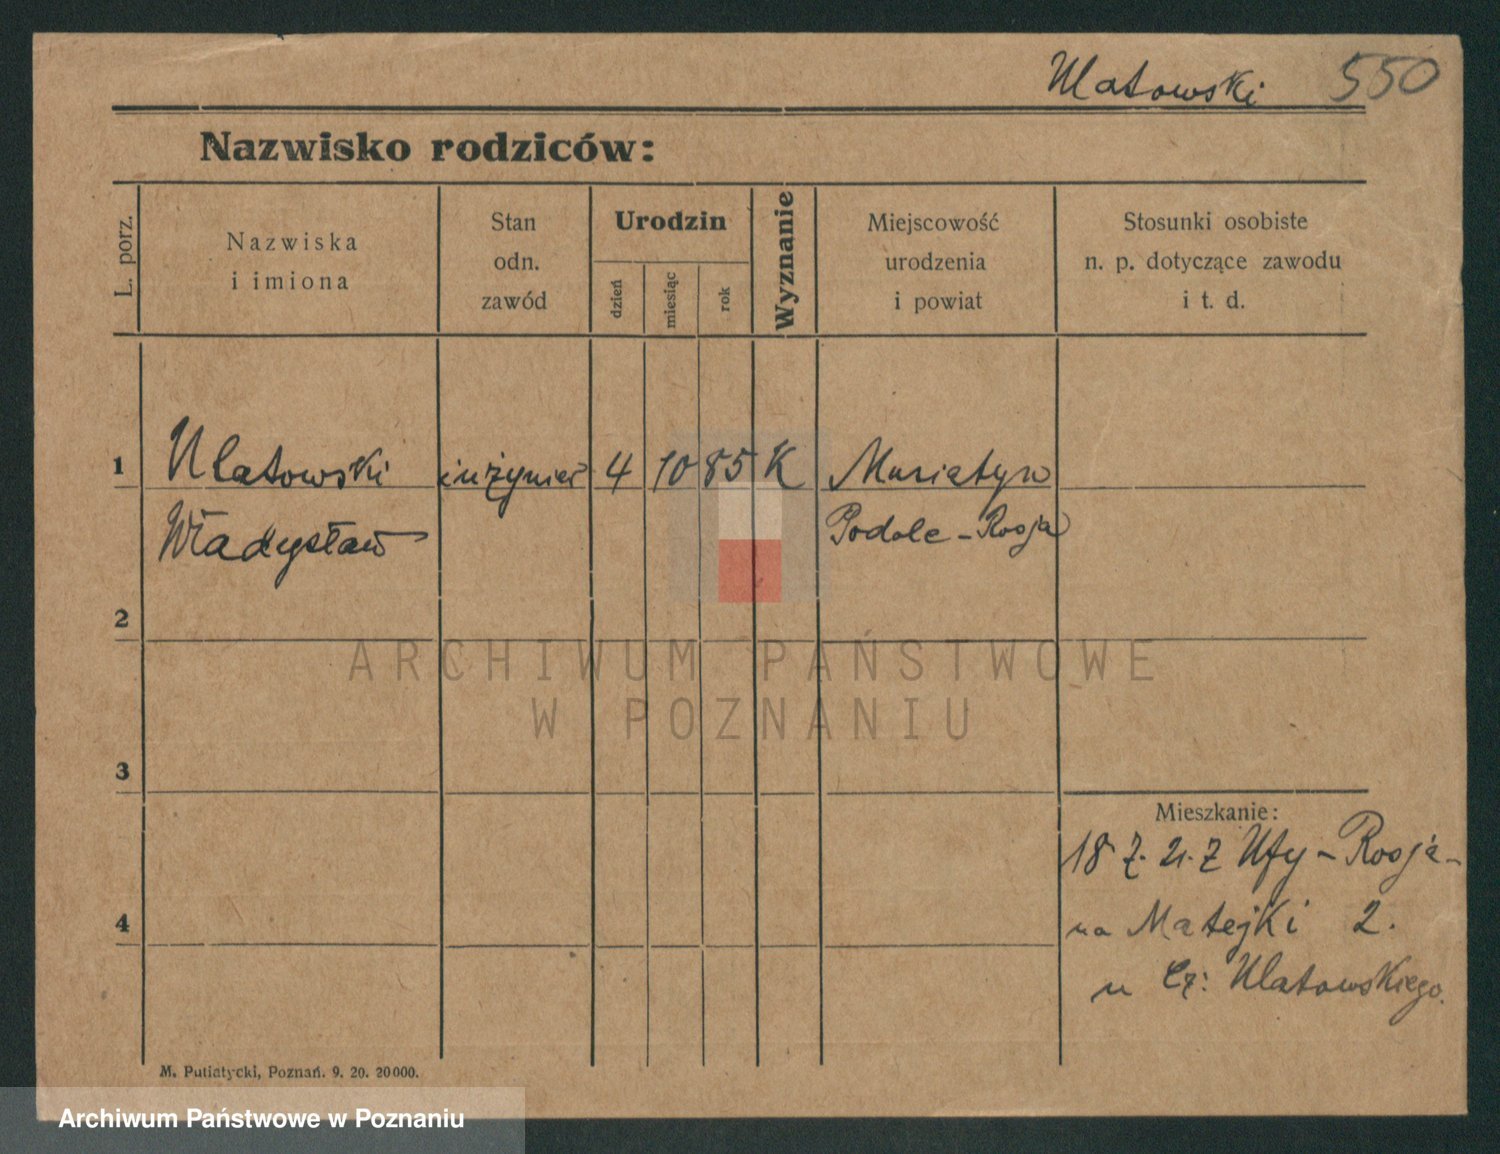 Ulatowski 550
Nazwisko rodziców:
L. porz.
Nazwiska
i imiona
Stan
odn.
zawód
Urodzin
dzień
miesiąc
rok
Wyznanie
Miejscowość
urodzenia
i powiat
Stosunki osobiste
n. p. dotyczące zawodu
i t. d.
1 Ulatowski inżynier 4 10 85 K
Władysław Podole - Rosja
2
ARCHIWUM PAŃSTWOWE
W POZNANIU
3
Mieszkanie:
18 7. 21. z Ufy - Rosja -
4
na Matejki 2.
u Cz: Ulatowskiego.
M. Putiatycki, Poznań. 9. 20. 20000.
Archiwum Państwowe w Poznaniu